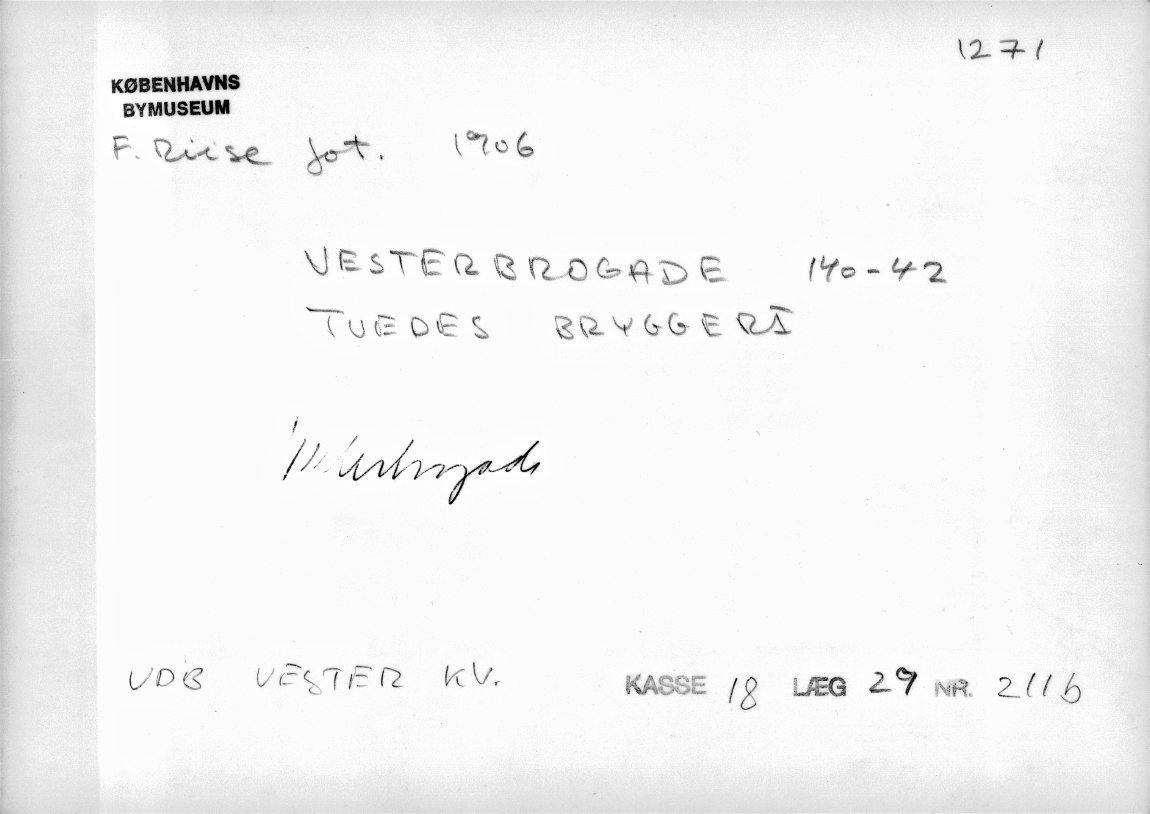 1271
KØBENHAVNS
BYMUSEUM
F. Riise fot. 1906
VESTERBROGADE 140-42
TVEDES BRYGGERI
Vesterbrogade
UDB VESTER KV.
KASSE 18 LÆG 29 NR. 211b